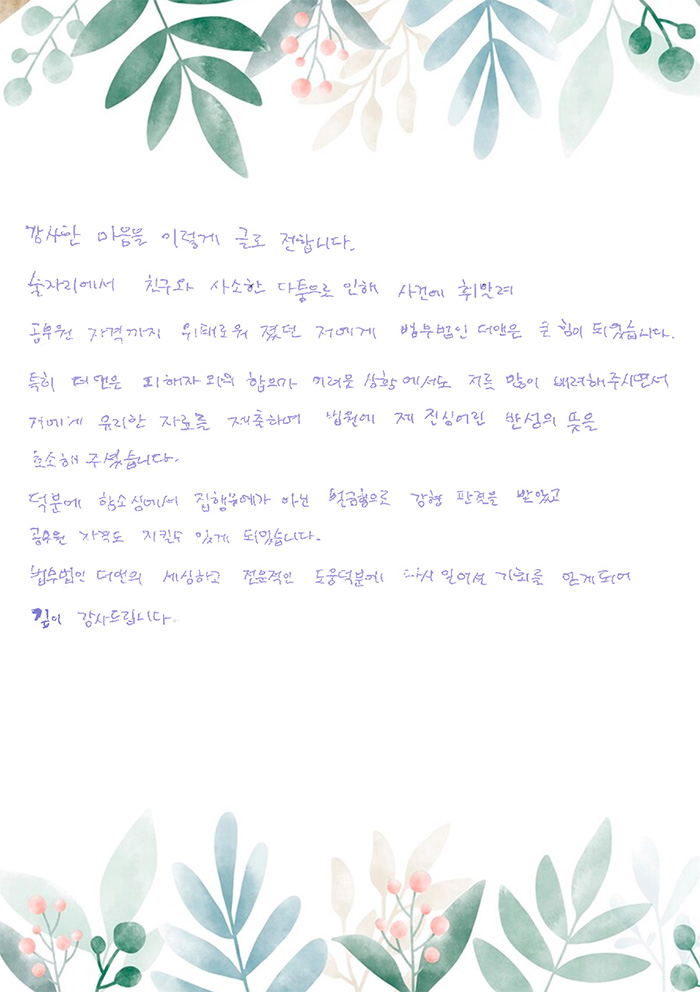 감사한 마음을 이렇게 글로 전합니다.
술자리에서 친구와 사소한 다툼으로 인해 사건에 휘말려
공무원 자격까지 위태로워 졌던 저에게 법무법인 더앤은 큰 힘이 되었습니다.
특히 더앤은 피해자와의 합의가 어려운 상황에서도 저를 많이 배려해주시면서
저에게 유리한 자료를 제출하며 법원에 제 진심어린 반성의 뜻을
호소해 주셨습니다.
덕분에 항소심에서 집행유예가 아닌 벌금형으로 감형 판결을 받았고
공무원 자격도 지킬수 있게 되었습니다.
법무법인 더앤의 세심하고 전문적인 도움덕분에 다시 일어설 기회를 얻게되어
깊이 감사드립니다.